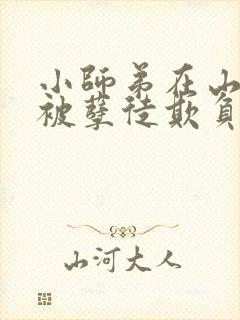 小師弟在山
被孽徒欺負
山河大人